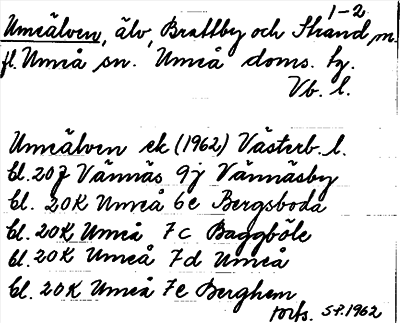 1-2
Umeälven, älv, Brattby och Strand, m.
fl. Umeå sn. Umeå doms. hg.
Vb. l.
Umeälven ek (1962) Västerb. l.
bl. 20J Vännäs 9j Vännäsby
bl. 20K Umeå 6e Bergsboda
bl. 20K Umeå 7c Baggböle
bl. 20K Umeå 7d Umeå
bl. 20K Umeå 7e Berghem
forts. 1962